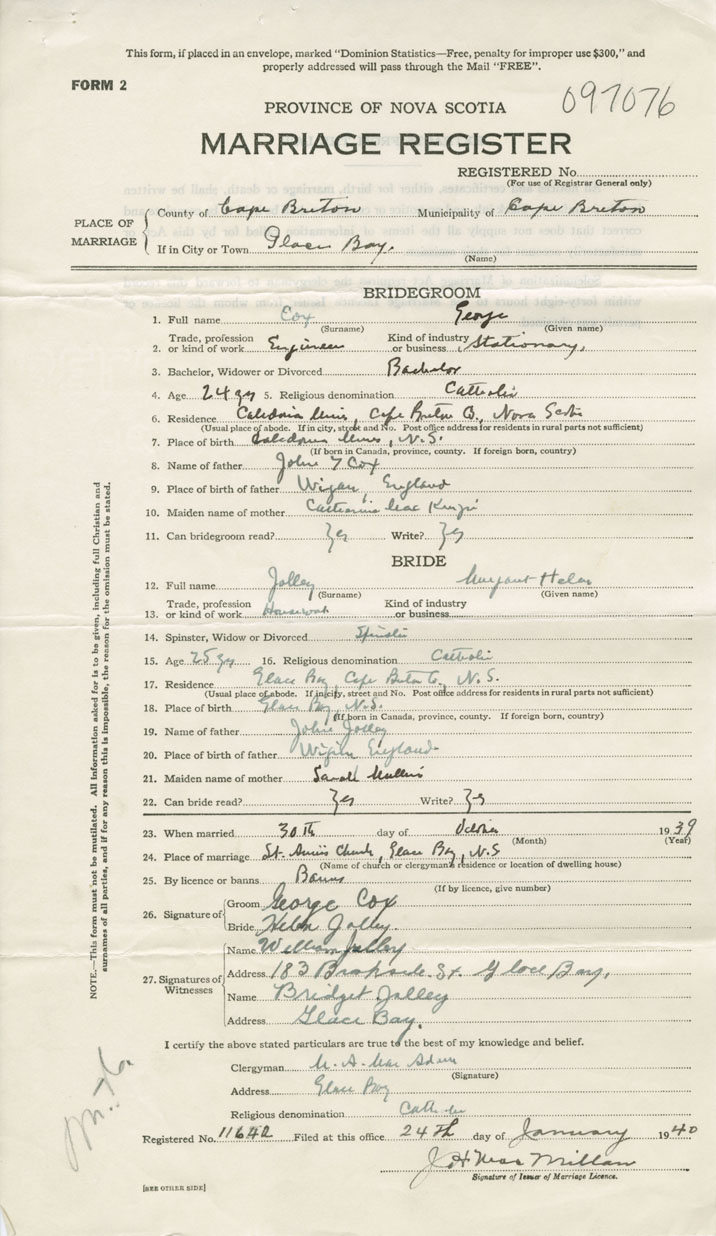 This form, if placed in an envelope, marked "Dominion Statistics—Free, penalty for improper use $300," and
properly addressed will pass through the Mail "FREE".
FORM 2
097076
PROVINCE OF NOVA SCOTIA
MARRIAGE REGISTER
REGISTERED No.
(For use of Registrar General only)
PLACE OF MARRIAGE
County of Cape Breton Municipality of Cape Breton
If in City or Town Glace Bay.
(Name)
BRIDEGROOM
1. Full name Cox George
(Surname) (Given name)
2. Trade, profession or kind of work Engineer Kind of industry or business Stationary,
3. Bachelor, Widower or Divorced Bachelor
4. Age 24 yrs 5. Religious denomination Catholic
6. Residence Caledonia Mines, Cape Breton Co., Nova Scotia
(Usual place of abode. If in city, street and No. Post office address for residents in rural parts not sufficient)
7. Place of birth Caledonia Mines, N.S.
(If born in Canada, province, county. If foreign born, country)
8. Name of father John T Cox
9. Place of birth of father Wigan, England
10. Maiden name of mother Catharine MacKenzie
11. Can bridegroom read? Yes Write? Yes
BRIDE
12. Full name Jolley Margaret Helen
(Surname) (Given name)
13. Trade, profession or kind of work Housework Kind of industry or business
14. Spinster, Widow or Divorced Spinster
15. Age 25 yrs 16. Religious denomination Catholic
17. Residence Glace Bay, Cape Breton Co., N.S.
(Usual place of abode. If in city, street and No. Post office address for residents in rural parts not sufficient)
18. Place of birth Glace Bay, N.S.
(If born in Canada, province, county. If foreign born, country)
19. Name of father John Jolley
20. Place of birth of father England
21. Maiden name of mother Sarah Mullins
22. Can bride read? Yes Write? Yes
23. When married 30th day of October 1939
(Month) (Year)
24. Place of marriage St. Anne's Church, Glace Bay, N.S
(Name of church or clergyman's residence or location of dwelling house)
25. By licence or banns Banns
(If by licence, give number)
26. Signature of
Groom George Cox
Bride Helen Jolley
27. Signatures of Witnesses
Name William Jolley
Address 183 Brookside St. Glace Bay.
Name Bridget Jolley
Address Glace Bay.
I certify the above stated particulars are true to the best of my knowledge and belief.
Clergyman M. A. MacAdam
(Signature)
Address Glace Bay
Religious denomination Catholic
Registered No. 11642 Filed at this office 24th day of January 1940
J H MacMillan
Signature of Issuer of Marriage Licence.
[SEE OTHER SIDE]
NOTE.—This form must not be mutilated. All information asked for is to be given, including full Christian and
surnames of all parties, and if for any reason this is impossible, the reason for the omission must be stated.